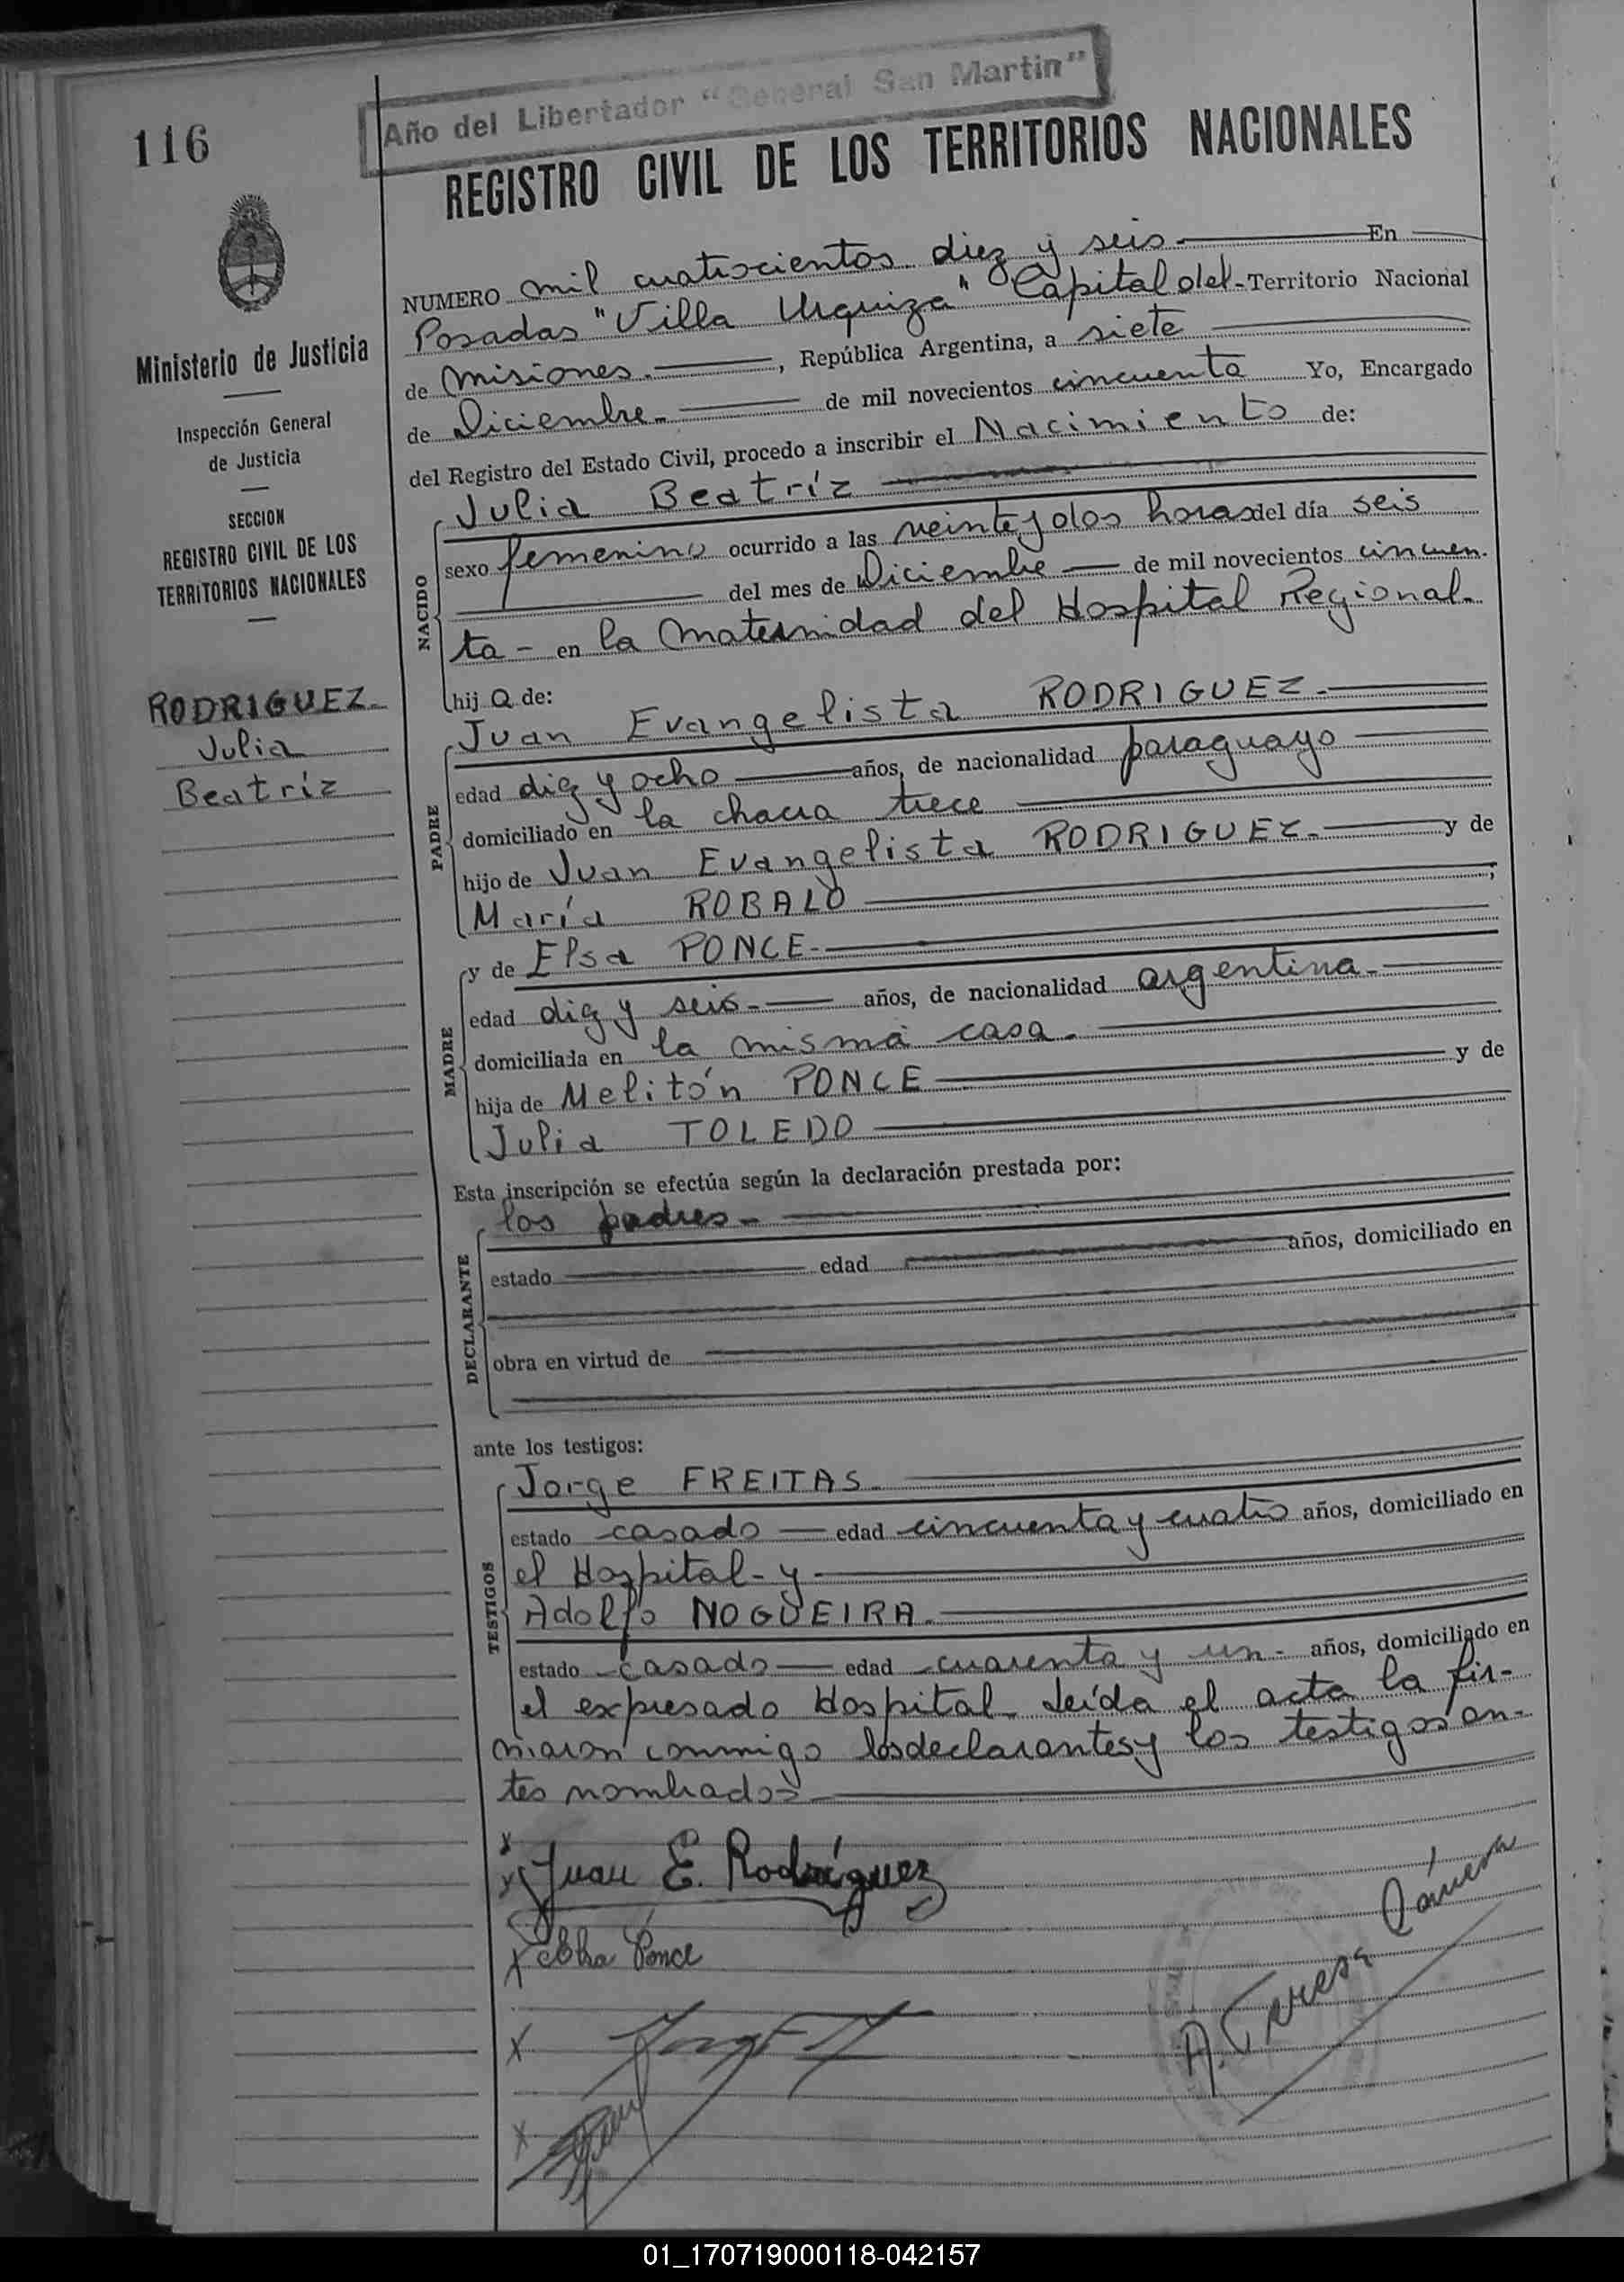 Año del Libertador "General San Martin"
116
REGISTRO CIVIL DE LOS TERRITORIOS NACIONALES
Ministerio de Justicia
Inspección General
de Justicia
SECCION
REGISTRO CIVIL DE LOS
TERRITORIOS NACIONALES
RODRIGUEZ
Julia
Beatriz
NUMERO mil cuatrocientos diez y seis En
Posadas "Villa Urquiza" Capital del Territorio Nacional
de Misiones. , República Argentina, a siete
de Diciembre de mil novecientos cincuenta Yo, Encargado
del Registro del Estado Civil, procedo a inscribir el Nacimiento de:
NACIDO
Julia Beatríz
sexo femenino ocurrido a las veinte y dos horas del día seis
del mes de Diciembre de mil novecientos cincuen-
ta - en la Maternidad del Hospital Regional.
hij a de:
PADRE
Juan Evangelista RODRIGUEZ.
edad diez y ocho años, de nacionalidad paraguayo
domiciliado en la chacra trece
hijo de Juan Evangelista RODRIGUEZ. y de
María ROBALO ;
MADRE
y de Elsa PONCE.
edad diez y seis. años, de nacionalidad argentina.
domiciliada en la misma casa.
hija de Melitón PONCE y de
Julia TOLEDO
Esta inscripción se efectúa según la declaración prestada por:
DECLARANTE
los padres
estado edad años, domiciliado en
obra en virtud de
ante los testigos:
TESTIGOS
Jorge FREITAS.
estado casado edad cincuenta y cuatro años, domiciliado en
el Hospital - y
Adolfo NOGUEIRA.
estado casado edad cuarenta y un años, domiciliado en
el expresado Hospital. Leída el acta la fir-
maron conmigo los declarantes y los testigos an-
tes nombrados
x
x Juan E. Rodríguez
x Elsa Ponce
x
x
A. Teresa
01_170719000118-042157